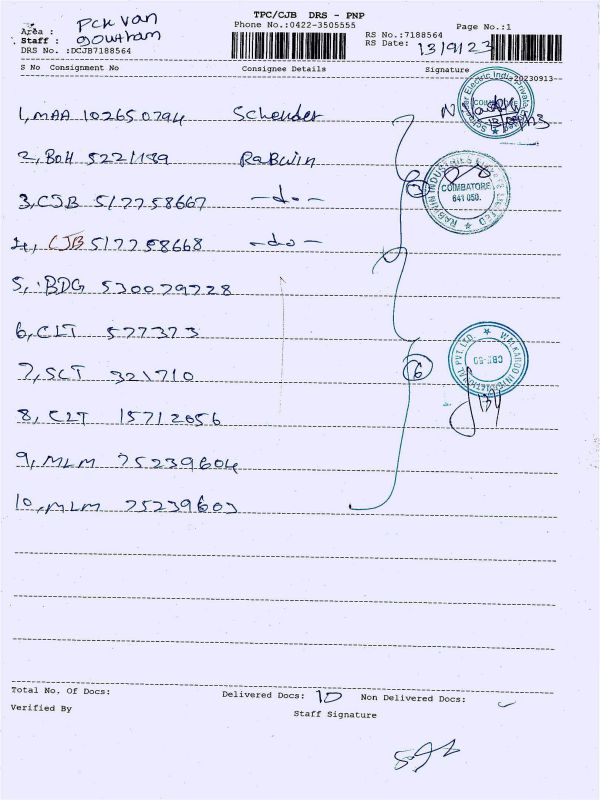 TPC/CJB DRS - PNP
Phone No.:0422-3505555
Page No.:1
Area : PCK Van
Staff : Gowtham
DRS No. :DCJB7188564
RS No.:7188564
RS Date: 13/9/23
S No Consignment No Consignee Details Signature
20230913
1, MAA 102650794 Schender
2, BOH 5221139 Rabwin
3, CJB 517758667 -do-
4, CJB 517758668 -do-
5, BDG 530079728
6, CLT 577373
7, SCT 321710
8, CLT 15712056
9, MLM 75239604
10, MLM 75239603
COIMBATORE
641 050.
6
WALKAROO INTERNATIONAL PVT LTD.
Total No. Of Docs: Delivered Docs: 10 Non Delivered Docs:
Verified By
Staff Signature